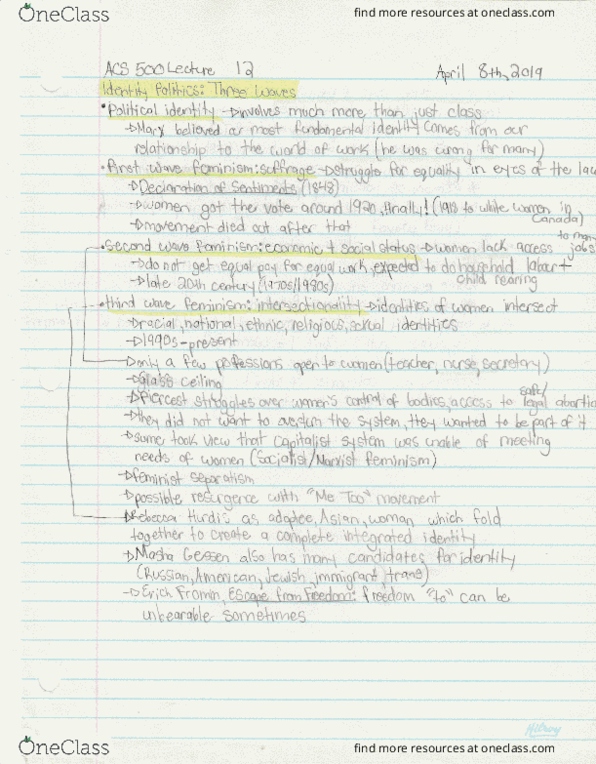 OneClass
find more resources at oneclass.com
ACS 500 Lecture 12
April 8th, 2019
Identity Politics: Three Waves
• Political identity → involves much more than just class
→ Marx believed our most fundamental identity comes from our
relationship to the world of work (he was wrong for many)
• First wave feminism: suffrage → struggle for equality in eyes of the law
→ Declaration of Sentiments (1848)
→ women got the vote around 1920, finally! (1918 to white women in
Canada)
→ movement died out after that
• Second wave feminism: economic + social status → women lack access
to many
jobs
→ do not get equal pay for equal work, expected to do household labor +
child rearing
→ late 20th century (1970s/1980s)
• third wave feminism: intersectionality → identities of women intersect
→ racial, national, ethnic, religious, sexual identities
→ 1990s-present
→ only a few professions open to women (teacher, nurse, secretary)
→ glass ceiling
→ fiercest struggles over women's control of bodies, access to legal abortio
safe/
→ they did not want to overturn the system, they wanted to be part of it
→ some took view that capitalist system was unable of meeting
needs of women (Socialist/Marxist feminism)
→ feminist separatism
→ possible resurgence with "Me Too" movement
→ Rebecca Hurdis as adoptee, Asian, woman which fold
together to create a complete integrated identity
→ Masha Gessen also has many candidates for identity
(Russian, American, Jewish, immigrant, trans)
→ Erich Fromm, Escape from Freedom: freedom "to" can be
unbearable sometimes
Hilroy
OneClass
find more resources at oneclass.com